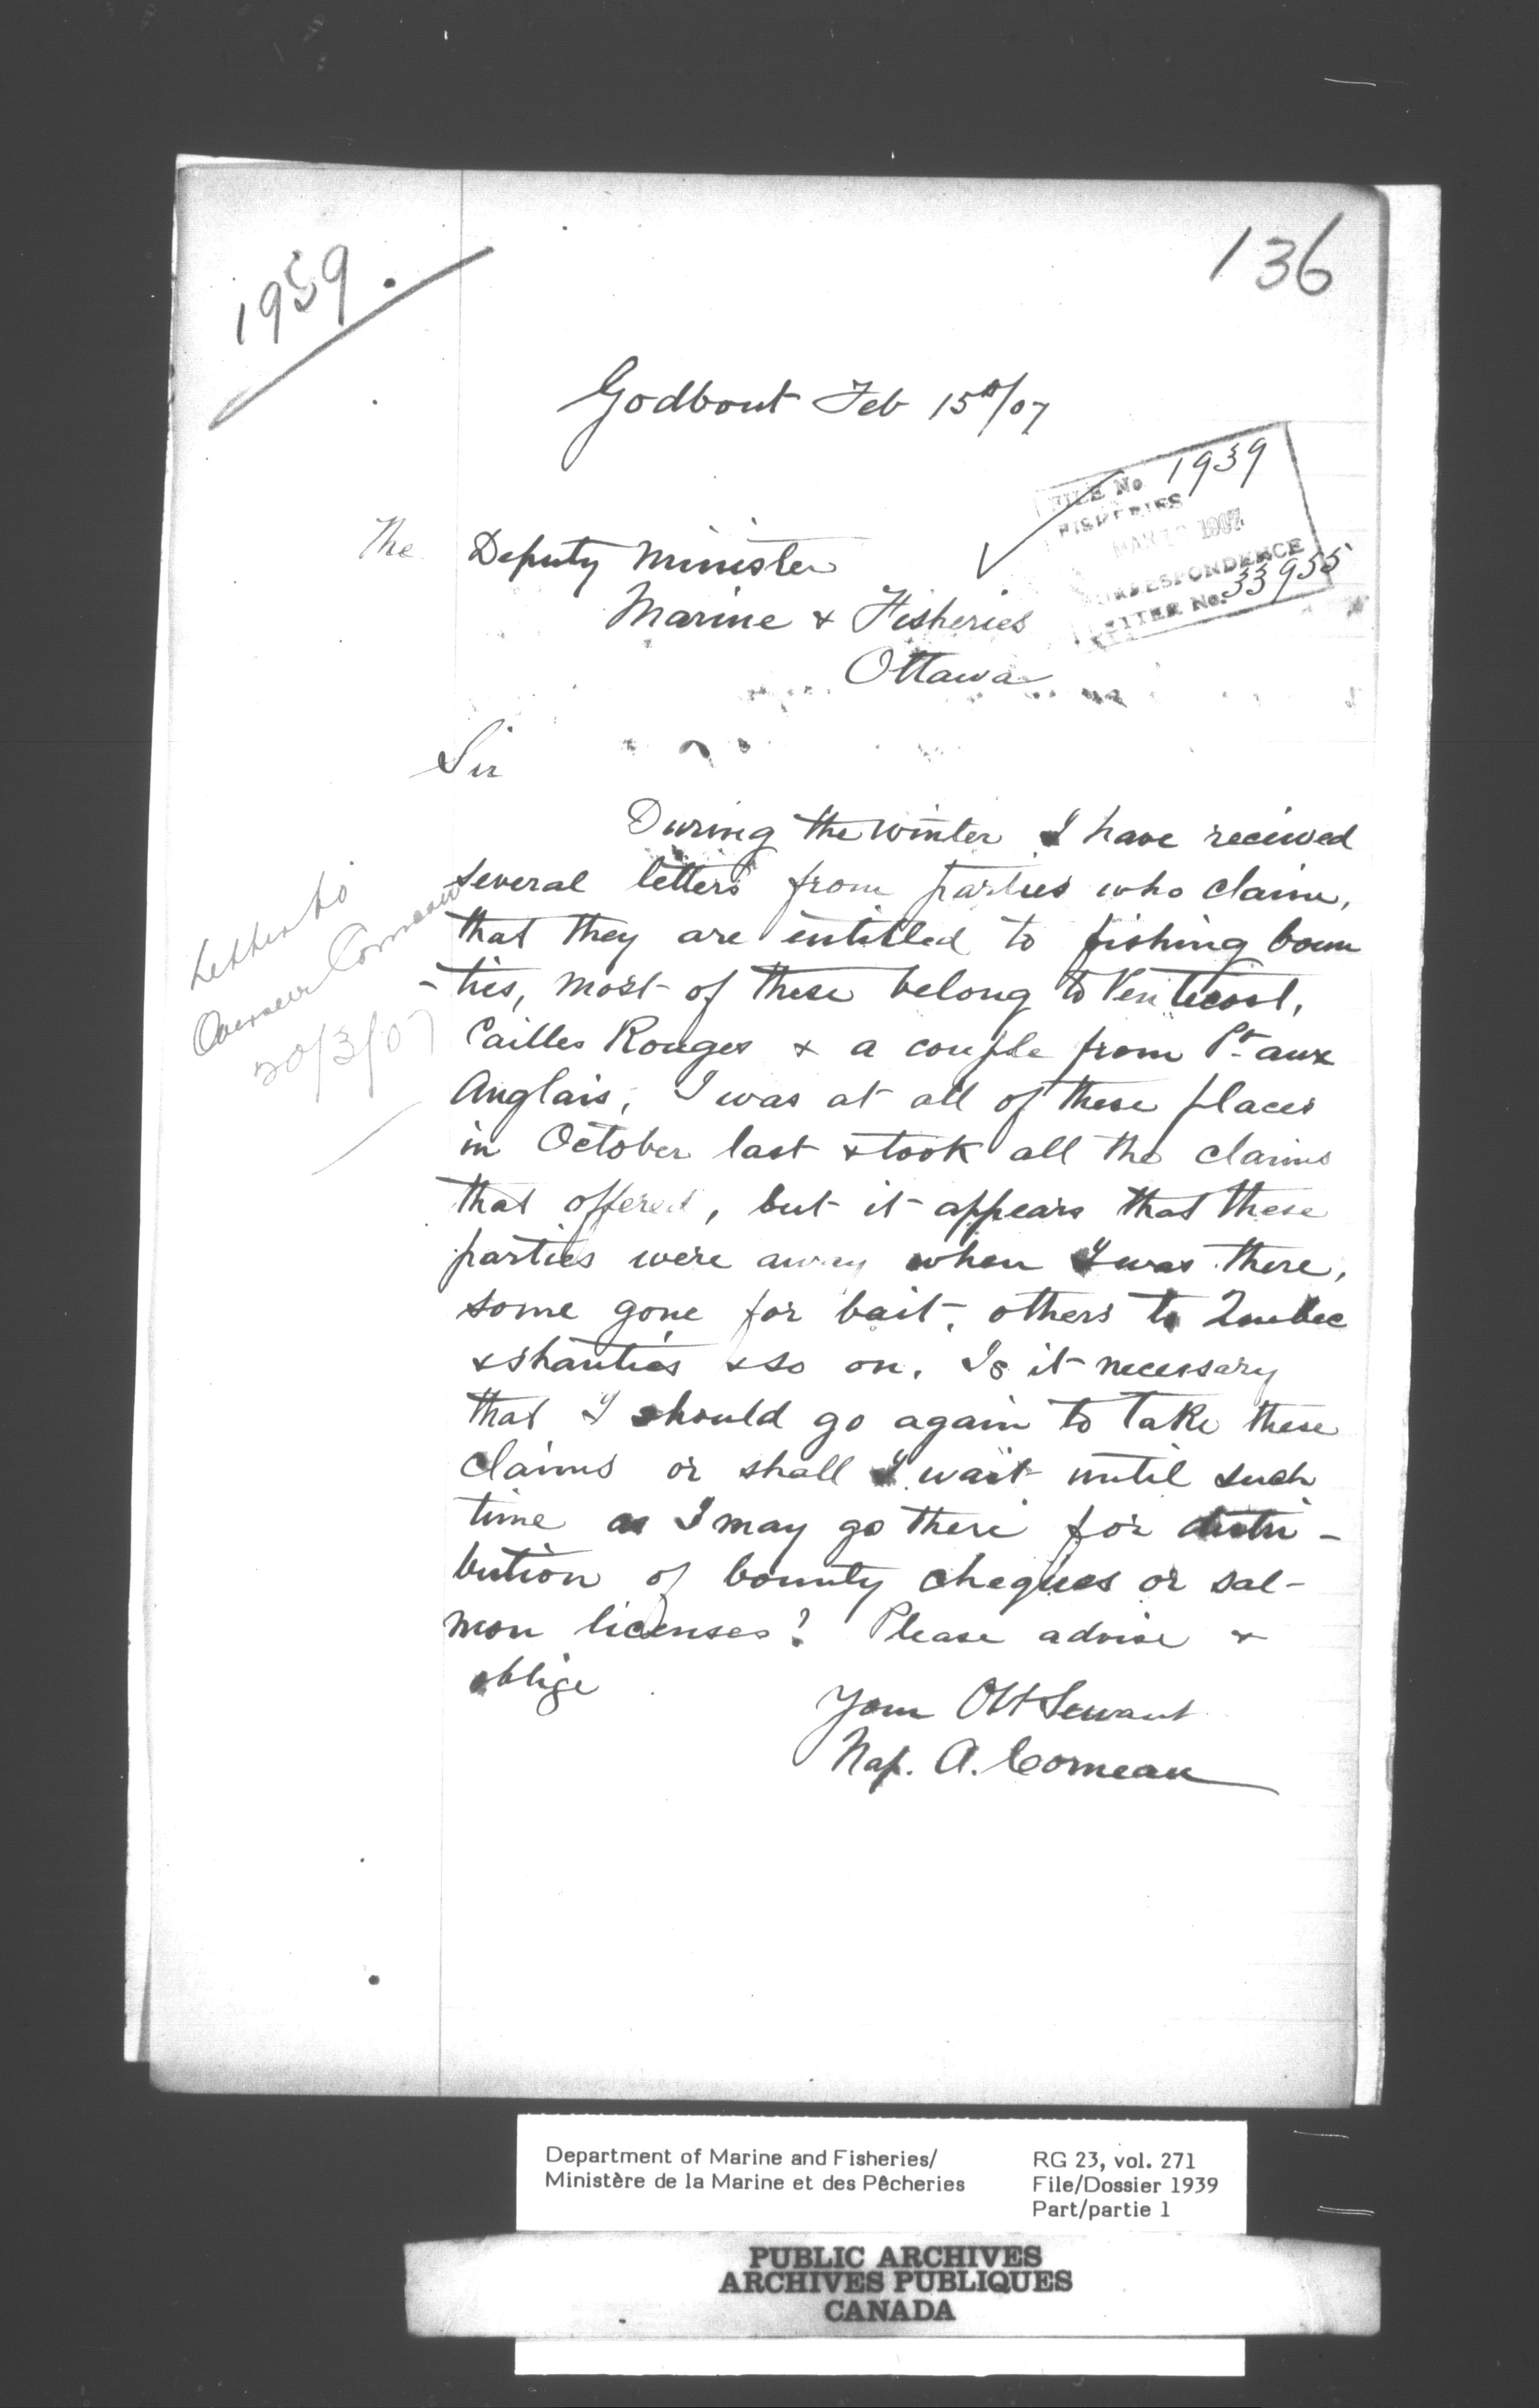 1939.
136
Godbout Feb 15th/07
FILE No. 1939
FISHERIES
MAR 1907
CORRESPONDENCE
LETTER No. 33955
The Deputy Minister
Marine & Fisheries
Ottawa
Sir
During the winter I have received
several letters from parties who claim,
that they are entitled to fishing boun
-ties, most of these belong to Penticost,
Cailles Rouges & a couple from Pt aux
Anglais, I was at all of these places
in October last & took all the claims
that offered, but it appears that these
parties were away when I was there,
some gone for bait, others to Quebec
& shanties & so on. Is it necessary
that I should go again to take these
claims or shall I wait until such
time as I may go there for distri-
bution of bounty cheques or sal-
mon licenses? Please advise &
oblige
Your Obt Servant
Nap. A. Comeau
Letter to
Overseer Comeau
20/3/07
Department of Marine and Fisheries/
Ministère de la Marine et des Pêcheries
RG 23, vol. 271
File/Dossier 1939
Part/partie 1
PUBLIC ARCHIVES
ARCHIVES PUBLIQUES
CANADA